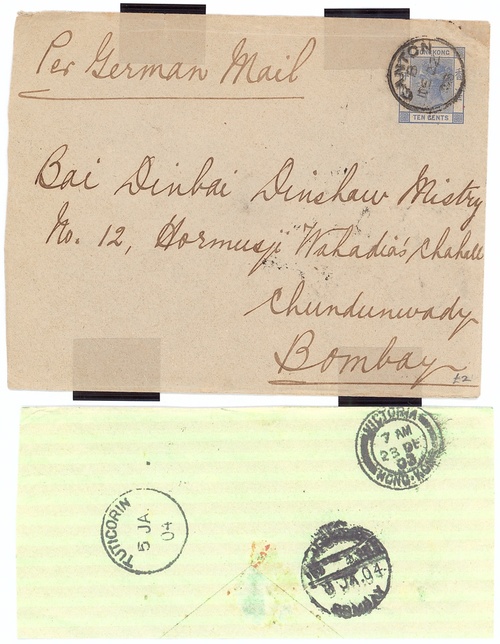 Per German Mail
CANTON
HONGKONG
TEN CENTS
Bai Dinbai Dinshaw Mistry
No. 12, Hormusji Wahadia's Chahall
Chundunwady
Bombay
£2
VICTORIA
7 AM
23 DE
03
HONG-KONG
TUTICORIN
5 JA
04
JA.04
BOMBAY